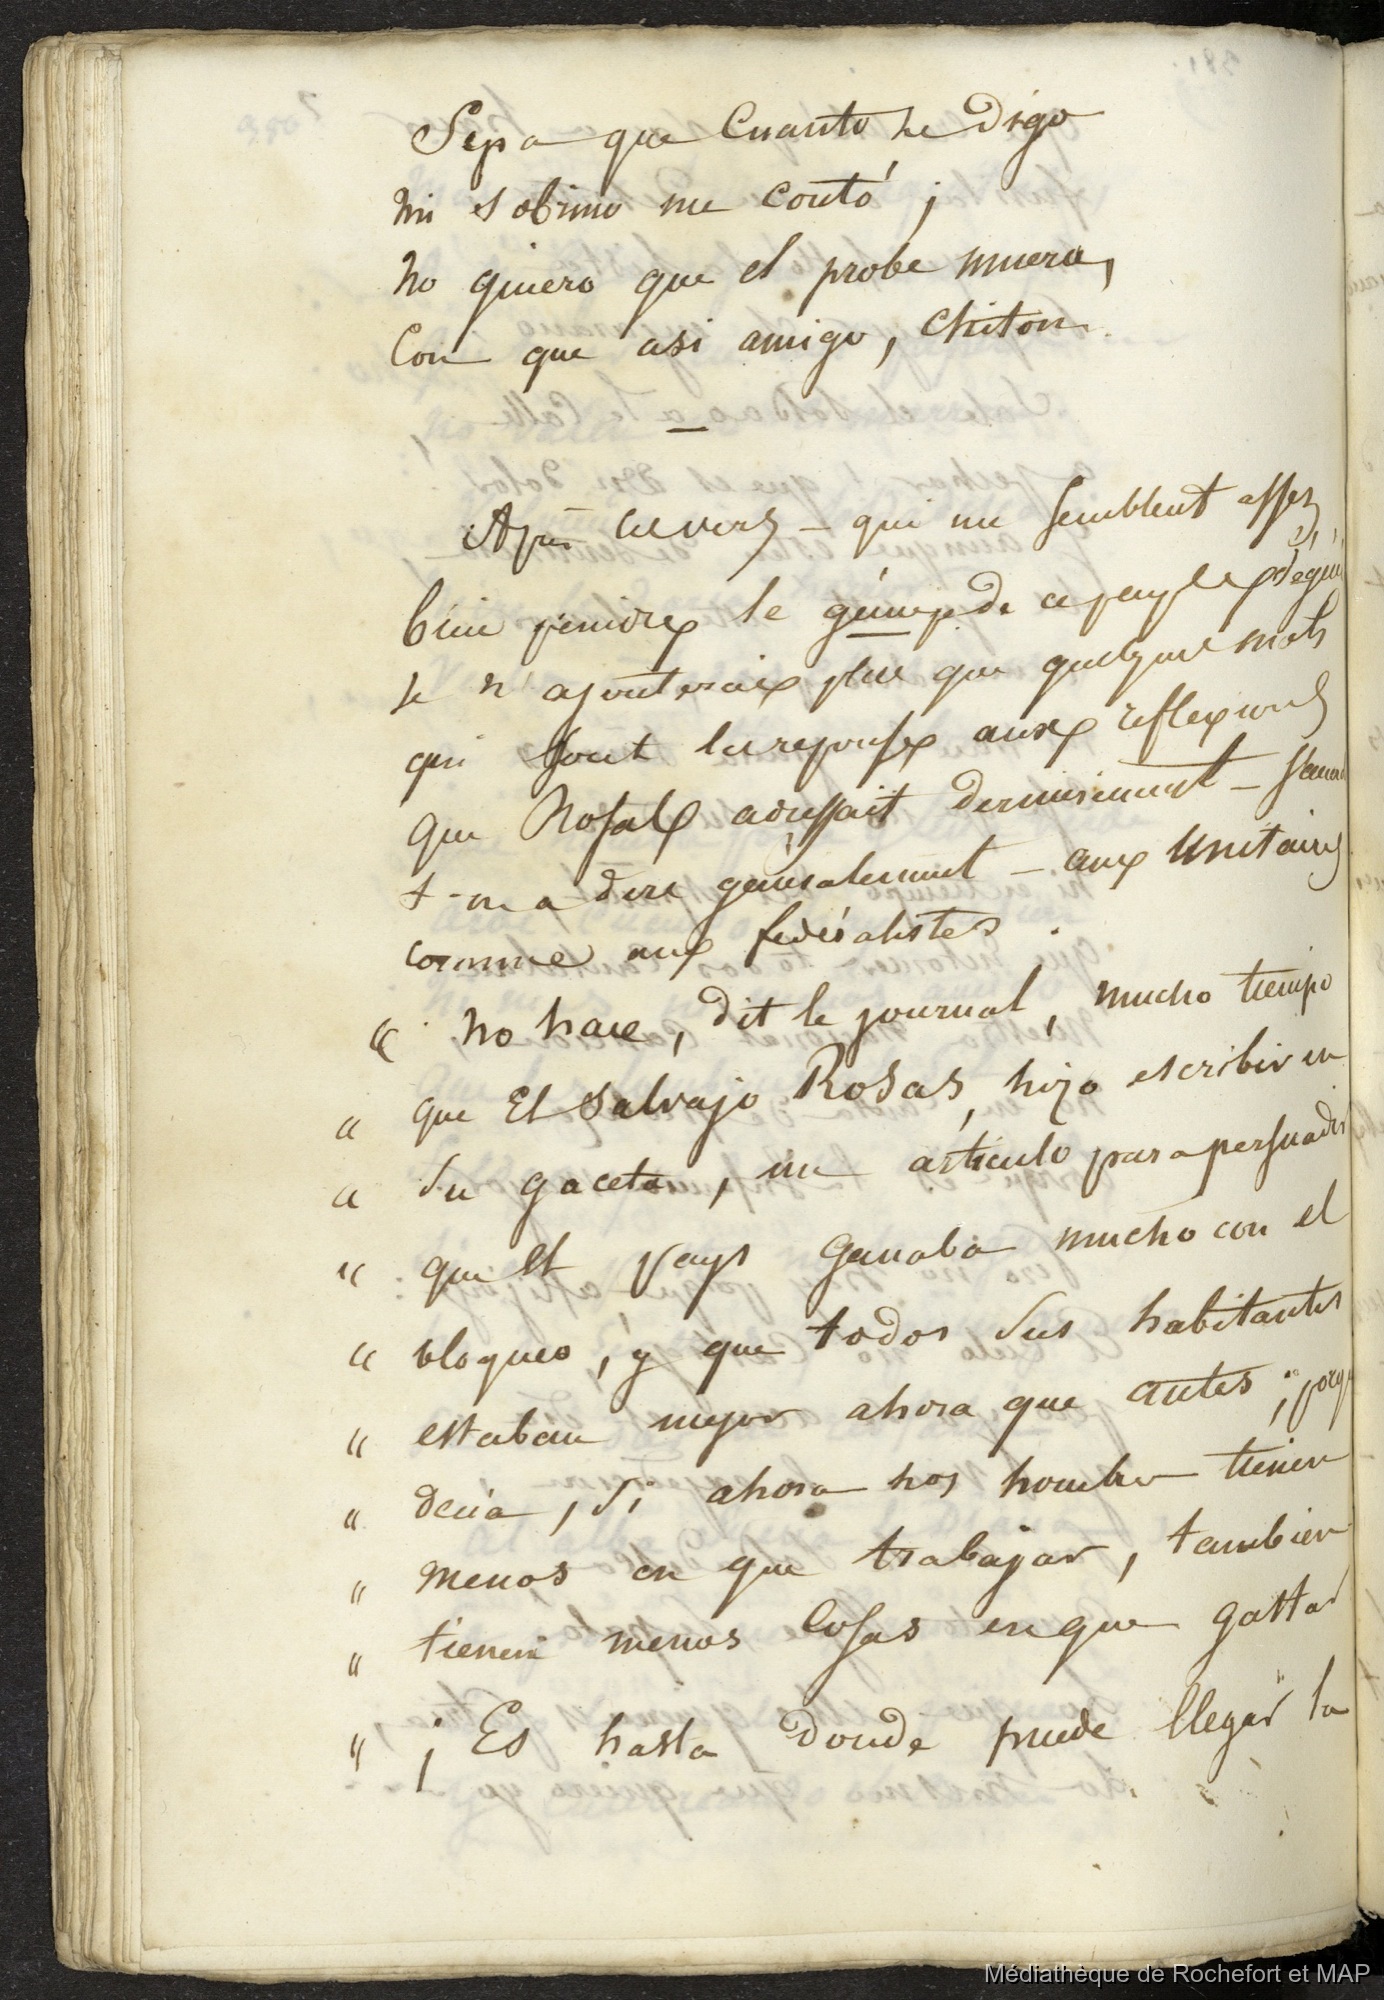 Sepa que Cuanto he Digo
mi sobrino me contó ;
no quiero que el probe muera,
Con que asi amigo, Chiton.
Après ces vers – qui me semblent assez
bien peindre le génie de ce peuple
Je n'ajouterais plus que quelques mots
qui sont les reponses aux reflexions
que Rosas adressait dernierement –
t-on a dire généralement – aux Unitaires
comme aux fedéralistes .
« No hace, dit le journal, mucho tiempo
« que El Salvajo Rosas, hizo escribir en
« su gaceta, un articulo para persuadir
« que el pays ganaba mucho con el
« bloqueo, y que todos sus habitantes
« estaban mejor ahora que antes ; porq
« decia, si ahora hos hombres tienen
« menos en que trabajar, tambien
« tienen menos cosas en que gastar
« ¡ Es hasta donde puede llegar la
Médiathèque de Rochefort et MAP